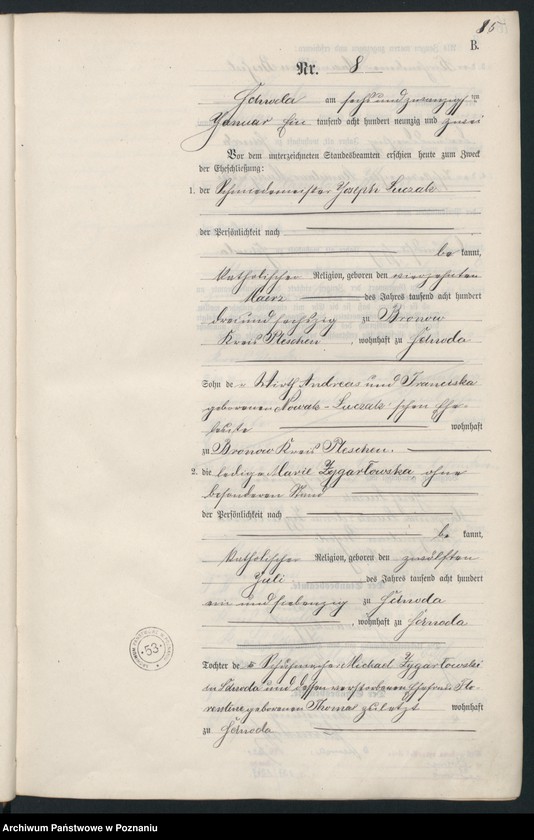 85
B.
Nr. 8
Schroda am sechs und zwanzigsten
Januar Ein tausend acht hundert neunzig und zwei
Vor dem unterzeichneten Standesbeamten erschien heute zum Zweck
der Eheschließung:
1. der Schmiedemeister Joseph Luczak
der Persönlichkeit nach
be kannt,
katholischer Religion, geboren den vierzehnten
Maerz des Jahres tausend acht hundert
drei und sechszig zu Bronow
Kreis Pleschen, wohnhaft zu Schroda
Sohn der Wirth Andreas und Franciska
geborenen Nowak-Luczak'schen Ehe-
leute wohnhaft
zu Bronow Kreis Pleschen.
2. die ledige Marie Zygarłowska ohne
besonderen Stand
der Persönlichkeit nach
be kannt,
katholischer Religion, geboren den zwölften
Juli des Jahres tausend acht hundert
ein und siebenzig zu Schroda
, wohnhaft zu Schroda
Tochter des Schuhmacher Michael Zygarłowski
in Schroda und dessen verstorbenen Ehefrau Flo-
rentine geborenen Thomas zuletzt wohnhaft
zu Schroda
53
Archiwum Państwowe w Poznaniu